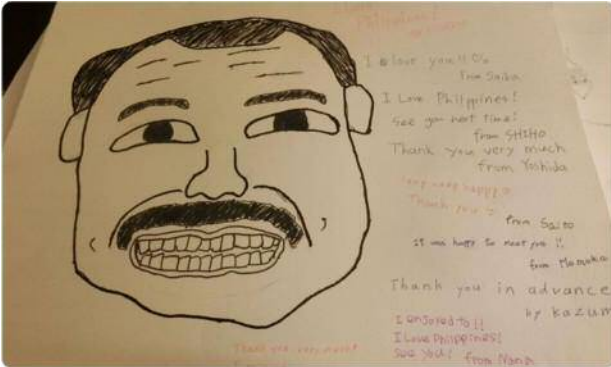 I Love
Philippines!
I love you!!
from Saika
I Love Philippines!
See you next time!
from SHIHO
Thank you very much
from Yoshida
very very happy
Thank you
from Saito
it was happy to meet you !!
from
Thank you in advance
by kazum
I enjoyed to !!
I Love Philippines!
See you! from Nana
Thank you very much!